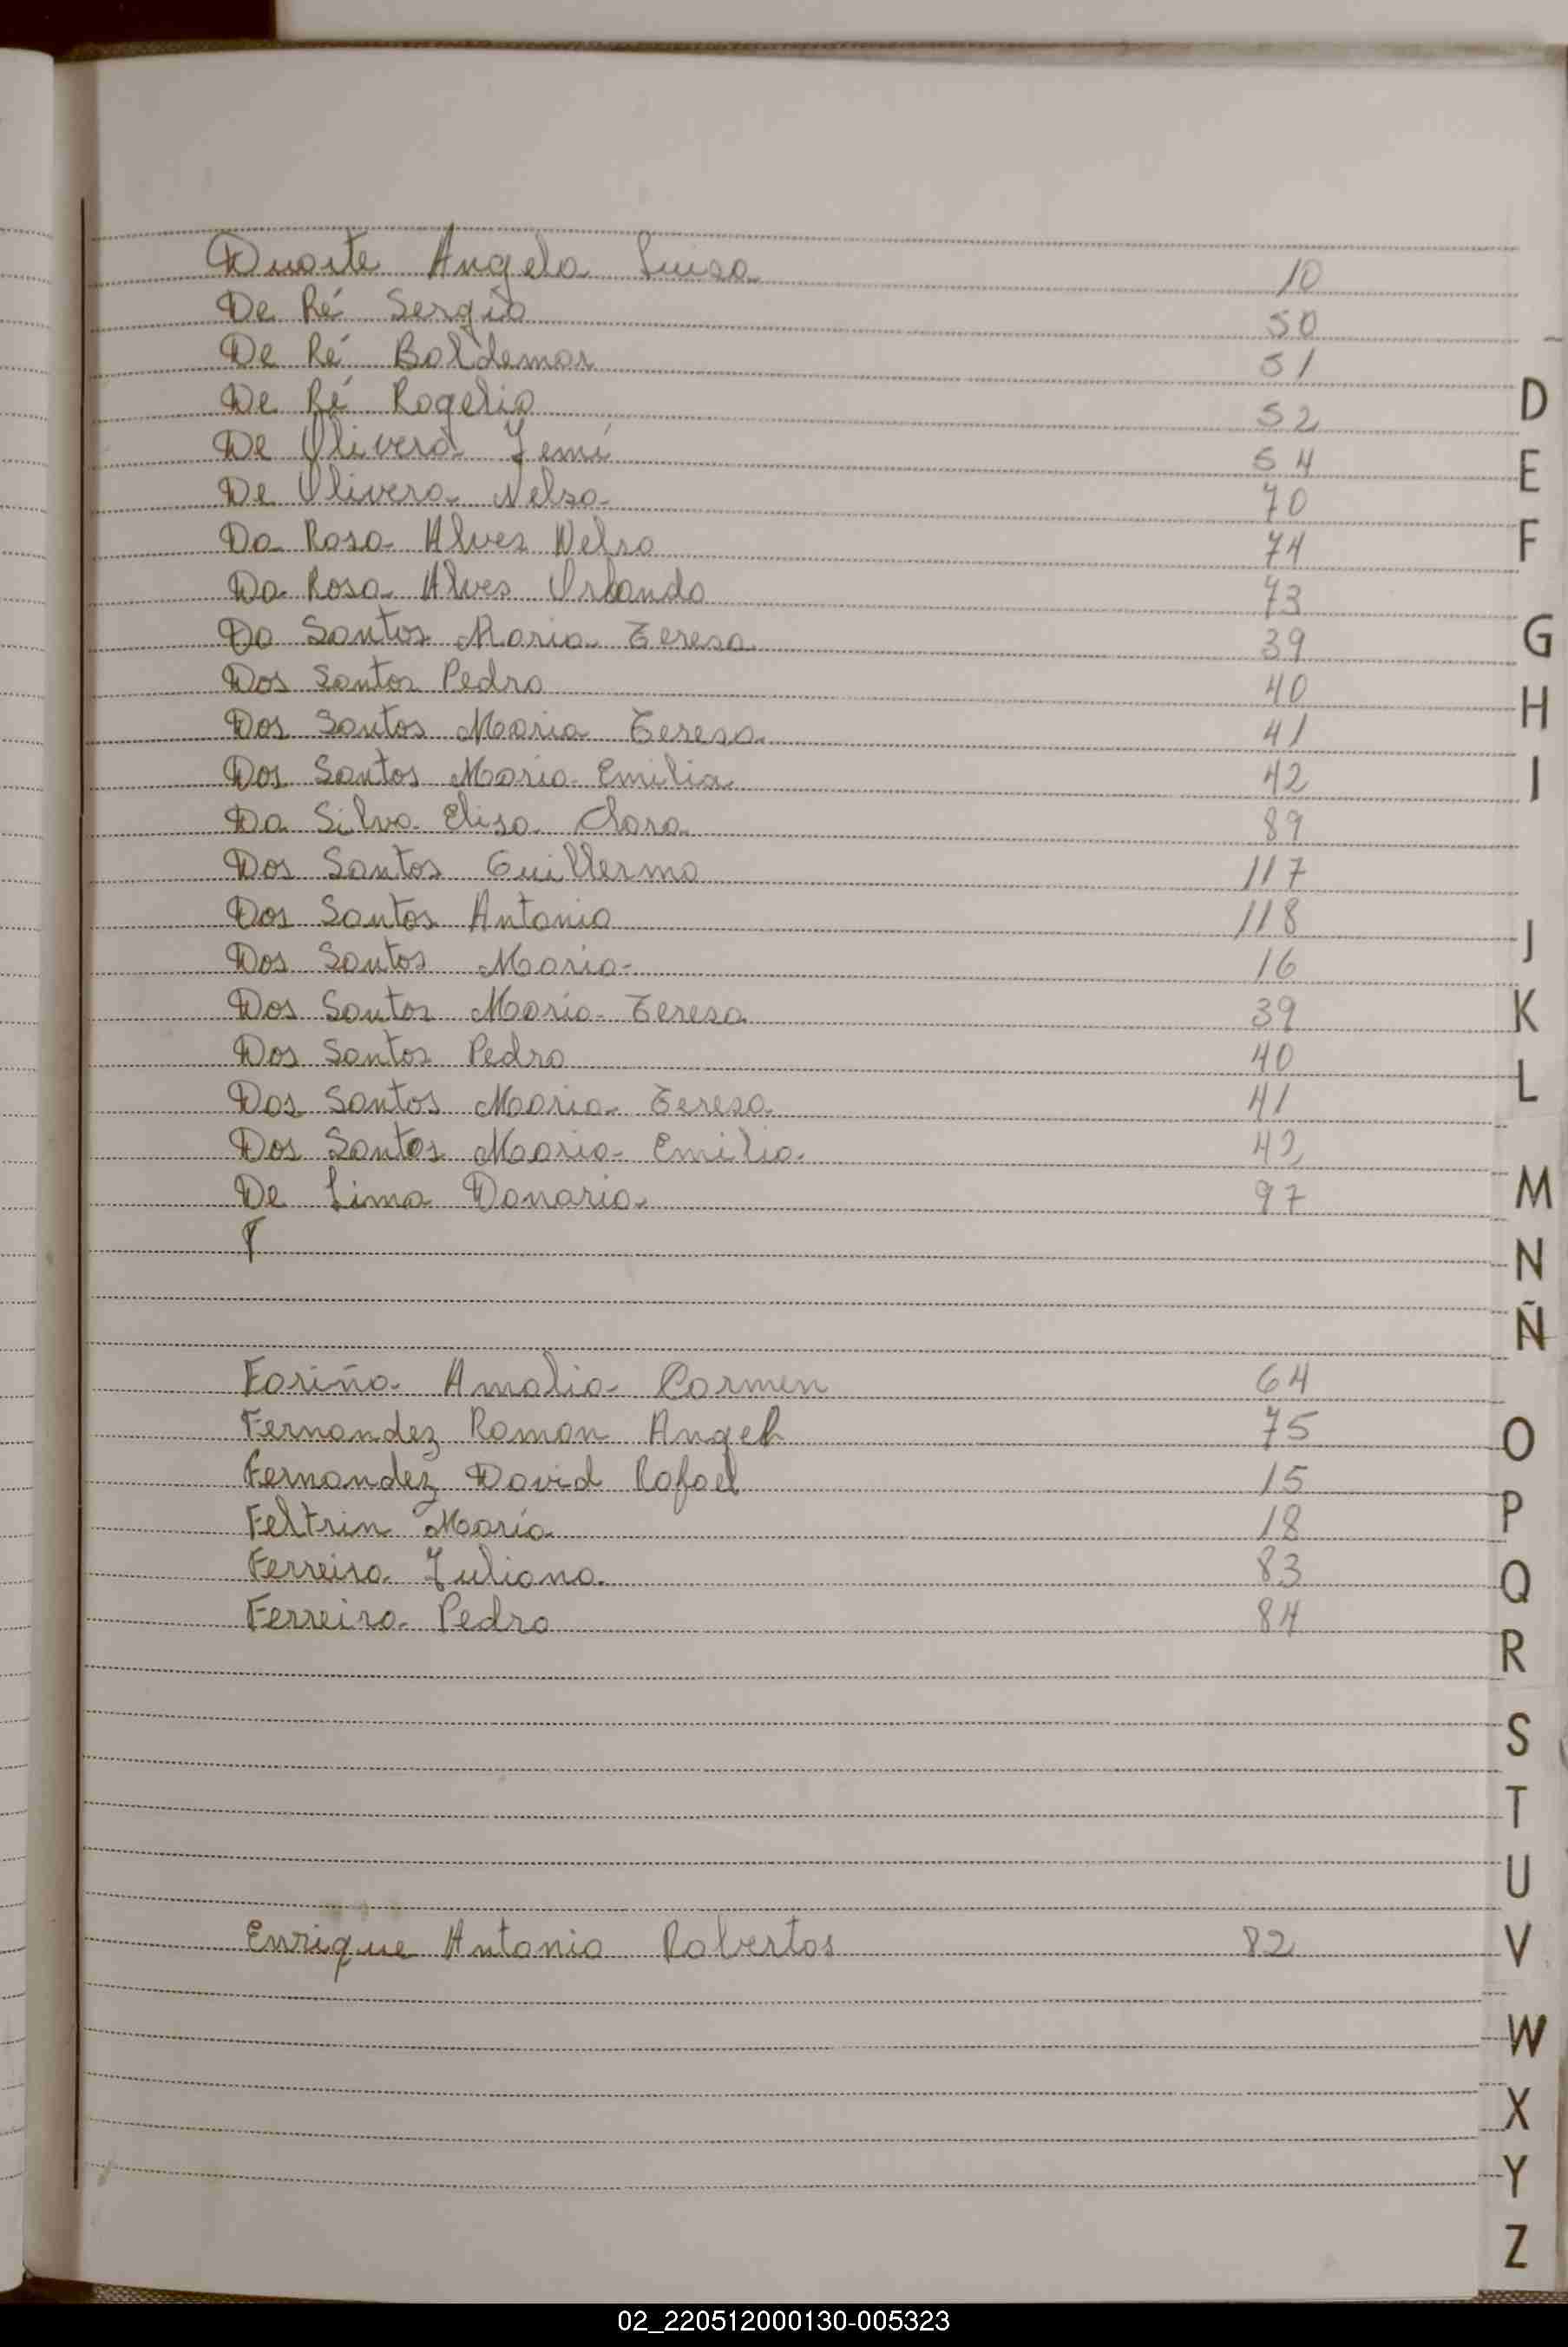 Duarte Angela Luisa 10
De Ré Sergio 50
De Ré Baldemar 51
De Ré Rogelio 52
De Olivera Jemi 54
De Olivera Nelso 70
Da Rosa Alves Nelso 74
Da Rosa Alves Orlando 73
Do Santos Maria Teresa 39
Dos Santos Pedro 40
Dos Santos Maria Teresa 41
Dos Santos Maria Emilia 42
Da Silva Elisa Clara 89
Dos Santos Guillermo 117
Dos Santos Antonio 118
Dos Santos Maria 16
Dos Santos Maria Teresa 39
Dos Santos Pedro 40
Dos Santos Maria Teresa 41
Dos Santos Maria Emilia 42
De Lima Donaria 97
Fariña Amalia Carmen 64
Fernandez Ramon Angel 75
Fernandez David Rafael 15
Feltrin María 18
Ferreira Juliana 83
Ferreira Pedro 84
Enrique Antonio Robertos 82
D
E
F
G
H
I
J
K
L
M
N
Ñ
O
P
Q
R
S
T
U
V
W
X
Y
Z
02_220512000130-005323